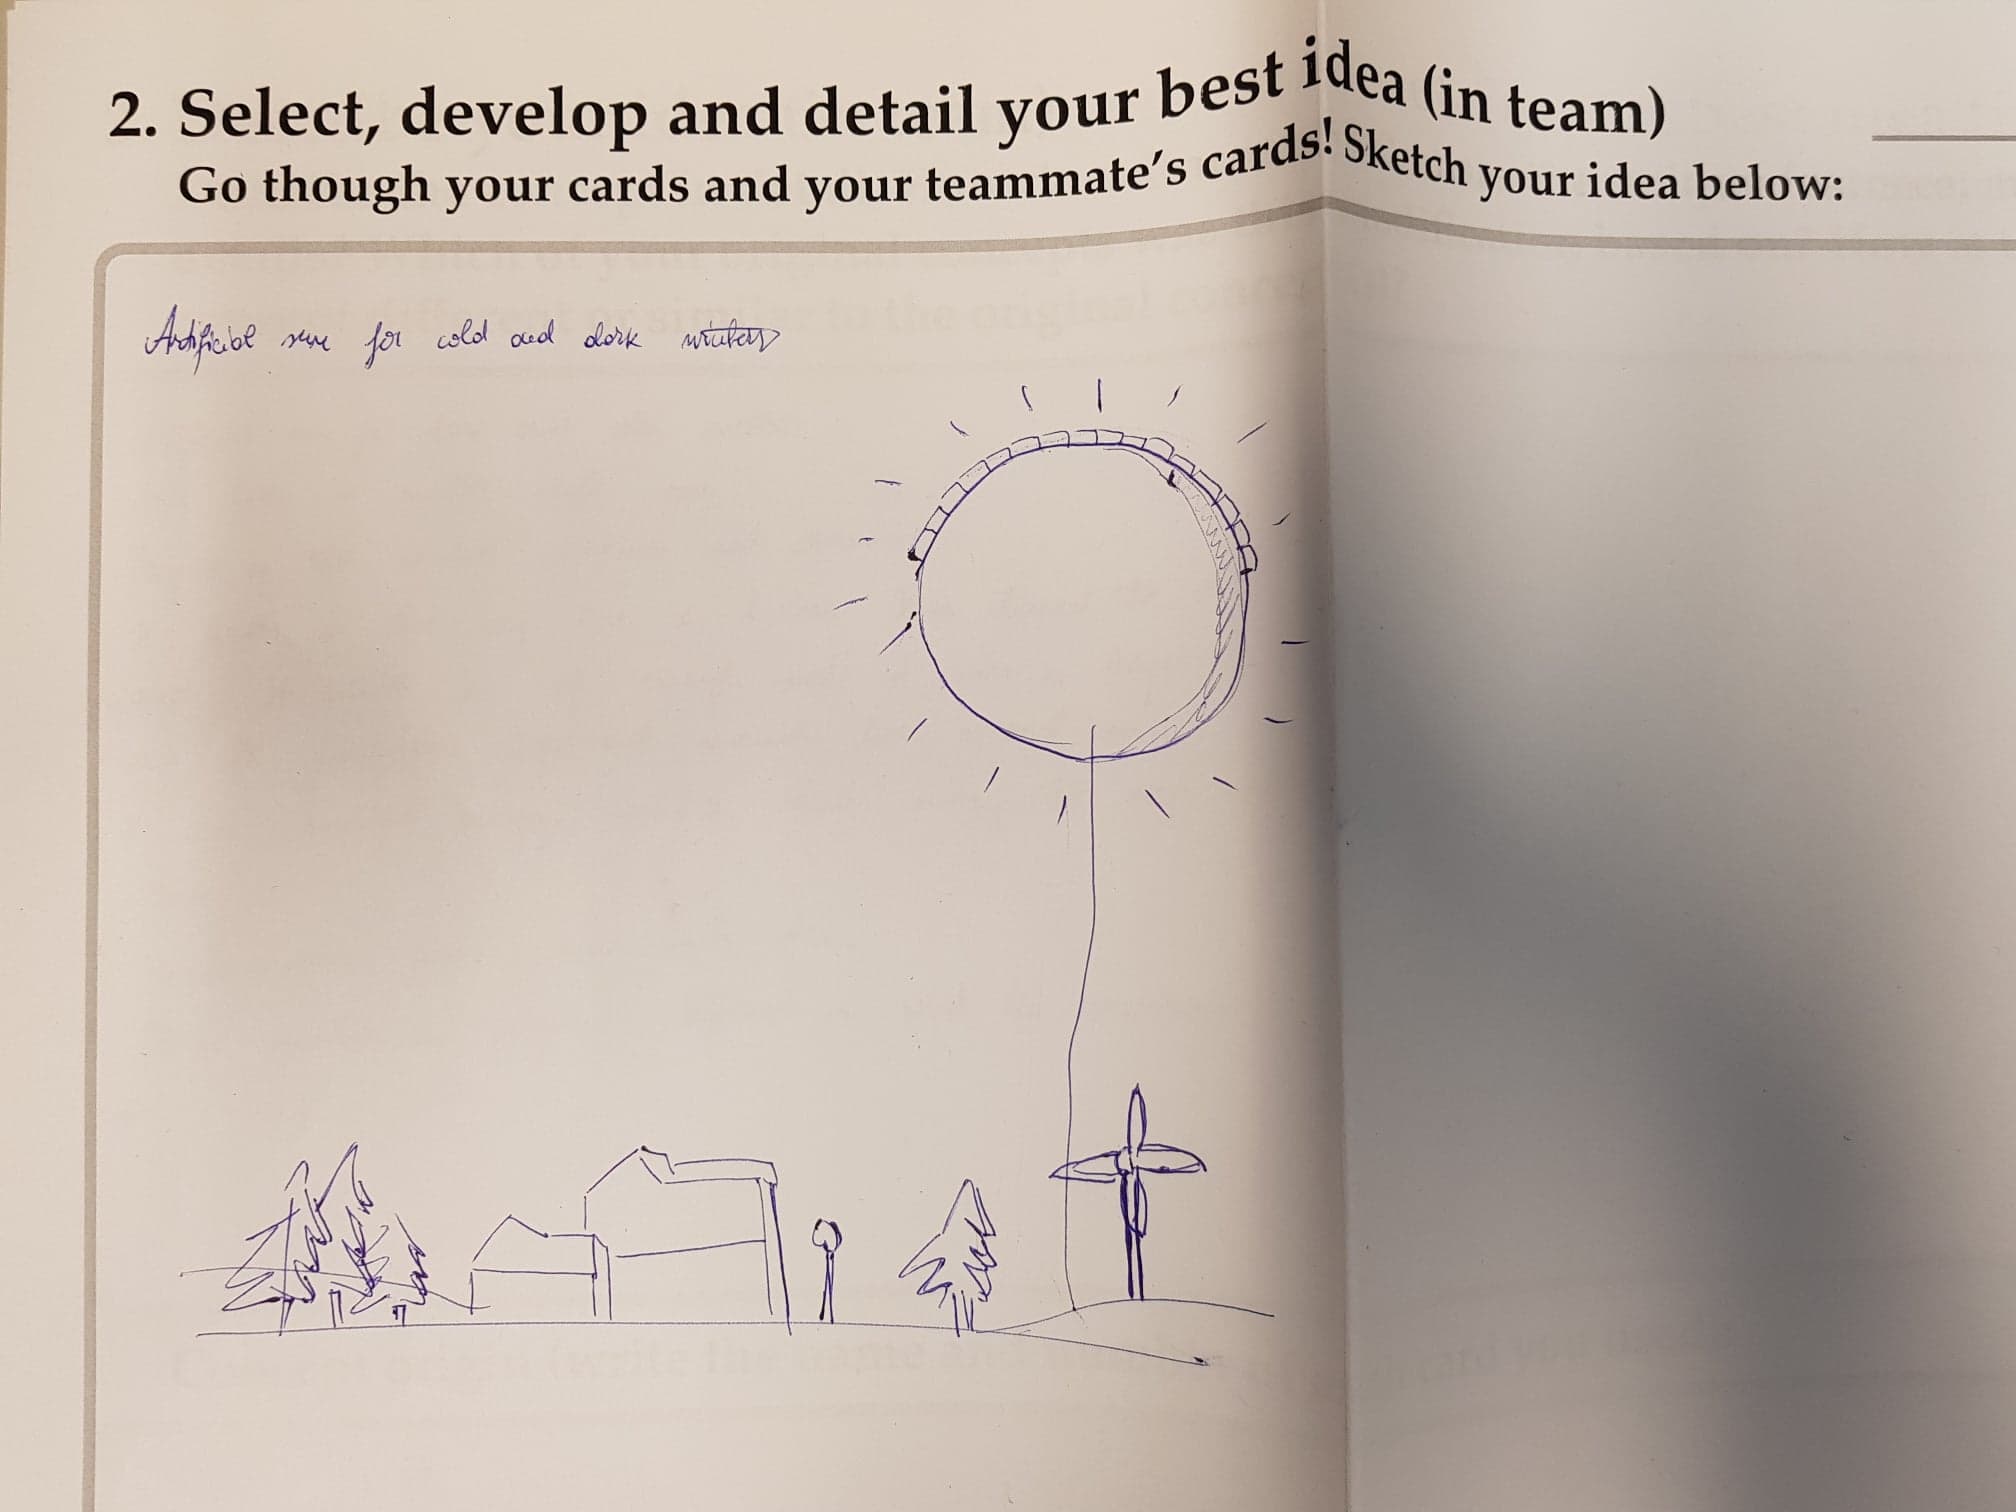 2. Select, develop and detail your best idea (in team)
Go though your cards and your teammate's cards! Sketch your idea below:
Artificial sun for cold and dark winters